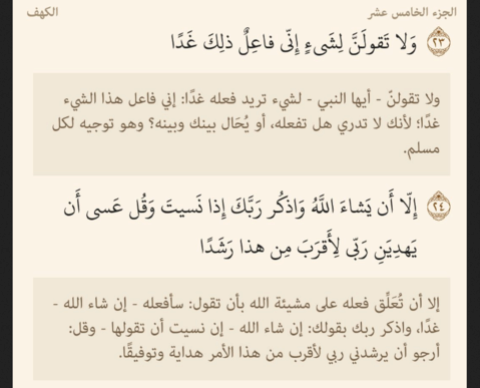 الجزء الخامس عشر
الكهف
٢٣ وَلا تَقولَنَّ لِشَيءٍ إِنّى فاعِلٌ ذلِكَ غَدًا
ولا تقولنّ - أيها النبي - لشيء تريد فعله غدًا: إني فاعل هذا الشيء
غدًا؛ لأنك لا تدري هل تفعله، أو يُحَال بينك وبينه؟ وهو توجيه لكل
مسلم.
٢٤ إِلّا أَن يَشاءَ اللَّهُ وَاذكُر رَبَّكَ إِذا نَسيتَ وَقُل عَسى أَن
يَهدِيَنِ رَبّى لِأَقرَبَ مِن هذا رَشَدًا
إلا أن تُعَلِّق فعله على مشيئة الله بأن تقول: سأفعله - إن شاء الله -
غدًا، واذكر ربك بقولك: إن شاء الله - إن نسيت أن تقولها - وقل:
أرجو أن يرشدني ربي لأقرب من هذا الأمر هداية وتوفيقًا.